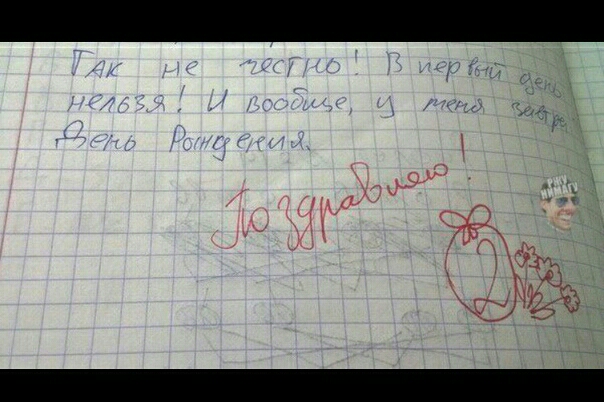 Так не честно! В первый день
нельзя! И вообще, у меня завтра
День Рождения.
Поздравляю!
2
РЖУ
НИМАГУ